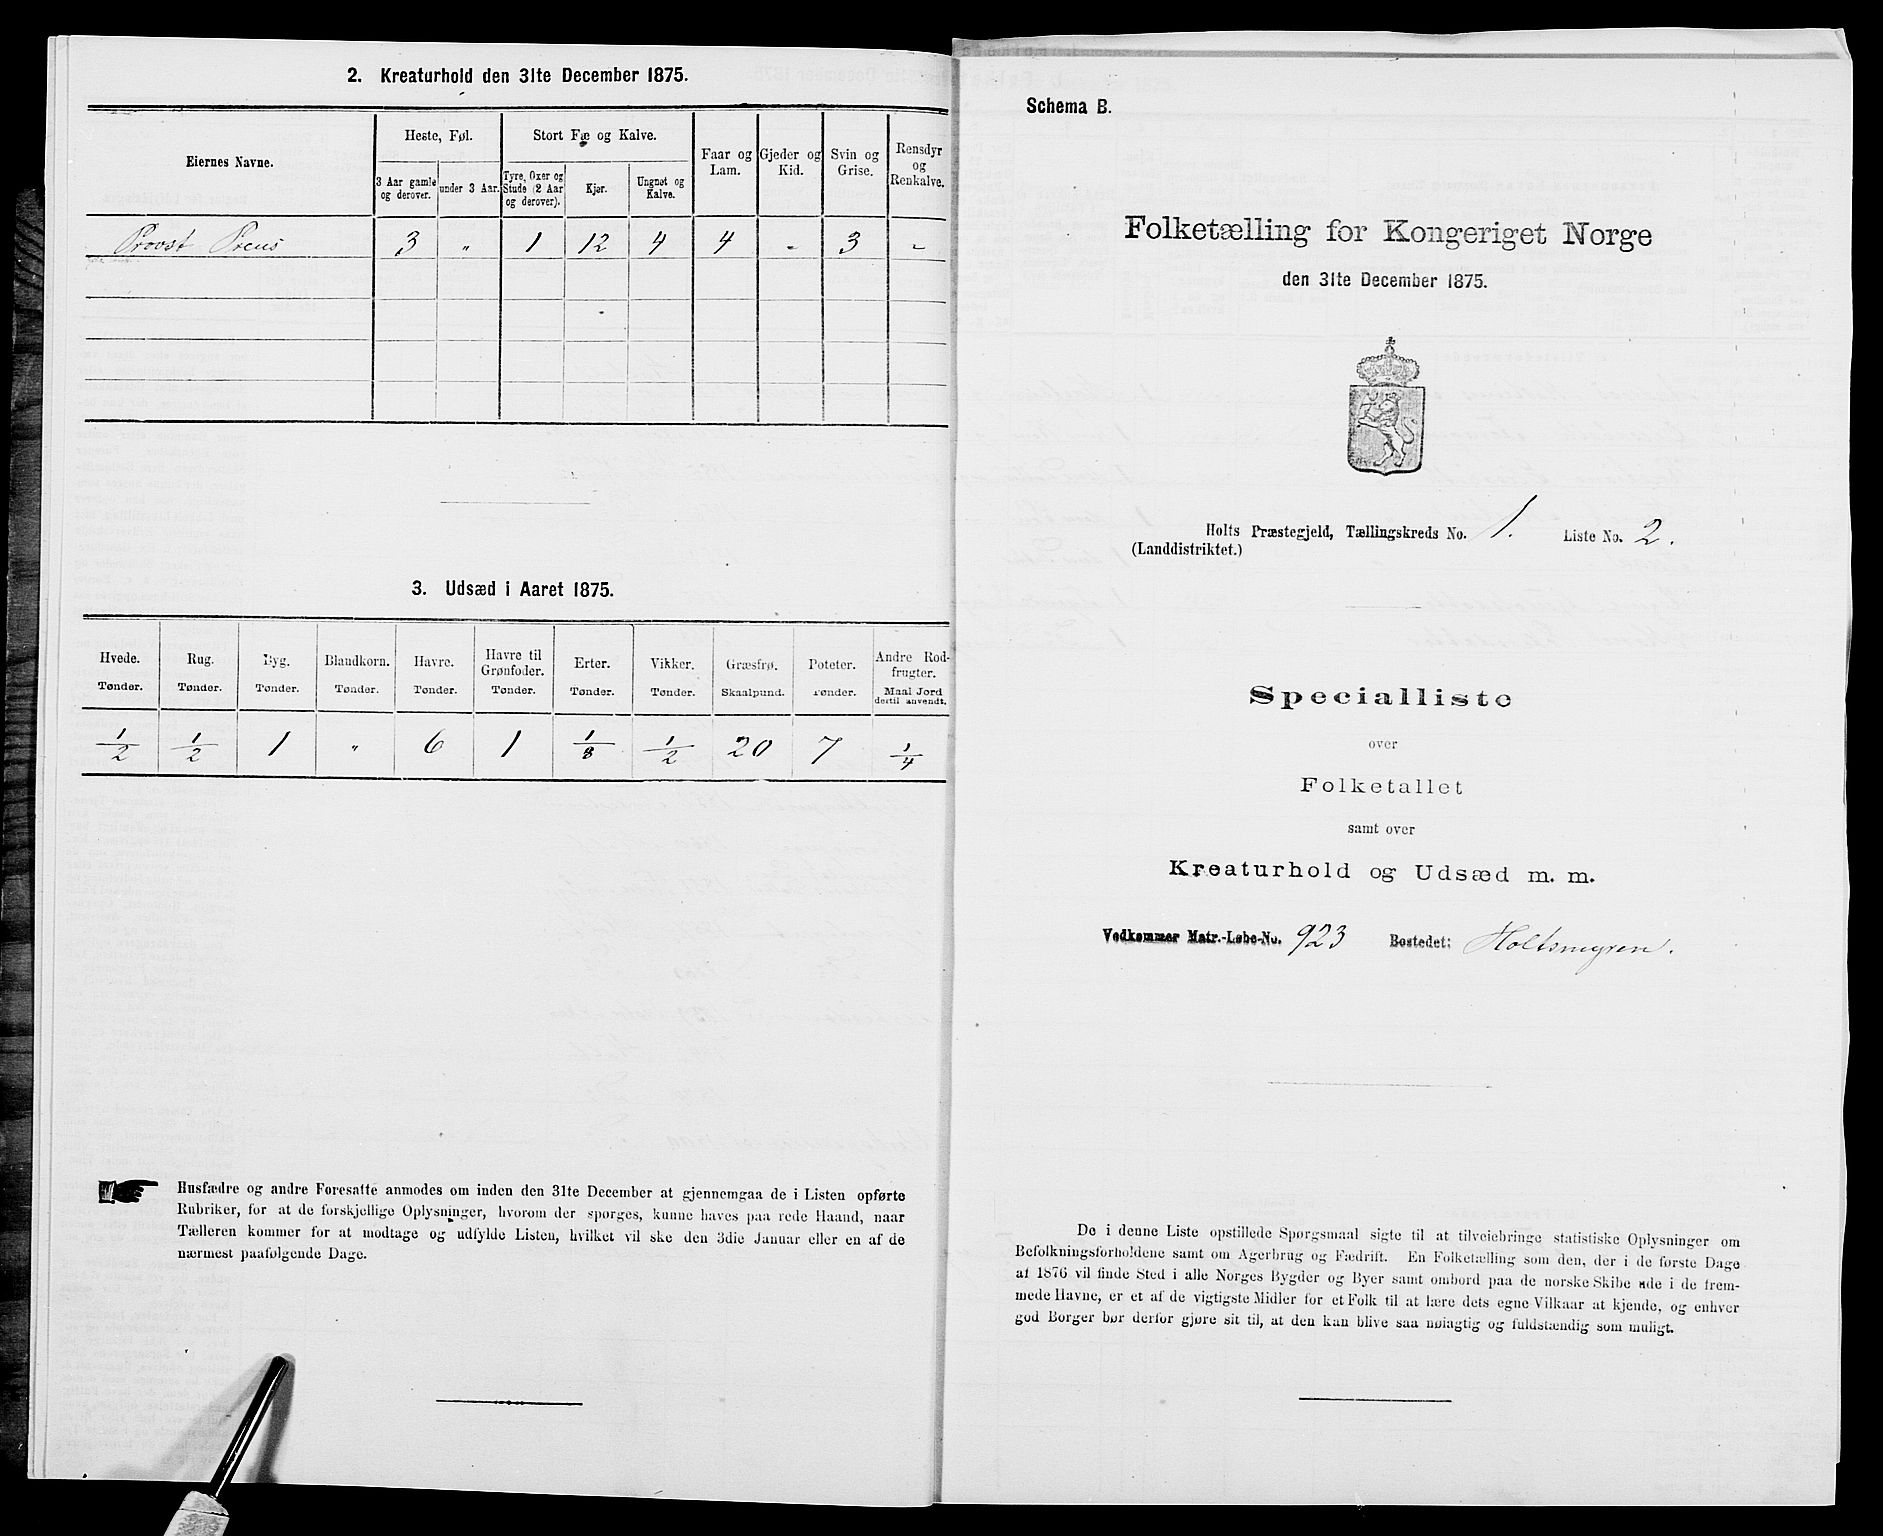 2. Kreaturhold den 31te December 1875.
Eiernes Navne.
Heste, Føl.
Stort Fæ og Kalve.
Faar og Lam.
Gjeder og Kid.
Svin og Grise.
Rensdyr og Renkalve.
3 Aar gamle og derover.
under 3 Aar.
Tyre, Oxer og Stude (2 Aar og derover).
Kjør.
Ungnøt og Kalve.
Provst Preus 3 „ 1 12 4 4 - 3 -
3. Udsæd i Aaret 1875.
Hvede. Rug. Byg. Blandkorn. Havre. Havre til Grønfoder. Erter. Vikker. Græsfrø. Poteter. Andre Rodfrugter.
Tønder. Tønder. Tønder. Tønder. Tønder. Tønder. Tønder. Tønder. Skaalpund. Tønder. Maal Jord dertil anvendt.
1/2 1/2 1 „ 6 1 1/8 1/2 20 7 1/4
Husfædre og andre Foresatte anmodes om inden den 31te December at gjennemgaa de i Listen opførte
Rubriker, for at de forskjellige Oplysninger, hvorom der spørges, kunne haves paa rede Haand, naar
Tælleren kommer for at modtage og udfylde Listen, hvilket vil ske den 3die Januar eller en af de
nærmest paafølgende Dage.
Schema B.
Folketælling for Kongeriget Norge
den 31te December 1875.
Holts Præstegjeld, Tællingskreds No. 1. Liste No. 2.
(Landdistriktet.)
Specialliste
over
Folketallet
samt over
Kreaturhold og Udsæd m. m.
Vedkommer Matr.-Løbe-No. 923 Bostedet: Holtsmyren.
De i denne Liste opstillede Spørgsmaal sigte til at tilveiebringe statistiske Oplysninger om
Befolkningsforholdene samt om Agerbrug og Fædrift. En Folketælling som den, der i de første Dage
af 1876 vil finde Sted i alle Norges Bygder og Byer samt ombord paa de norske Skibe ude i de frem-
mede Havne, er et af de vigtigste Midler for et Folk til at lære dets egne Vilkaar at kjende, og enhver
god Borger bør derfor gjøre sit til, at den kan blive saa nøiagtig og fuldstændig som muligt.